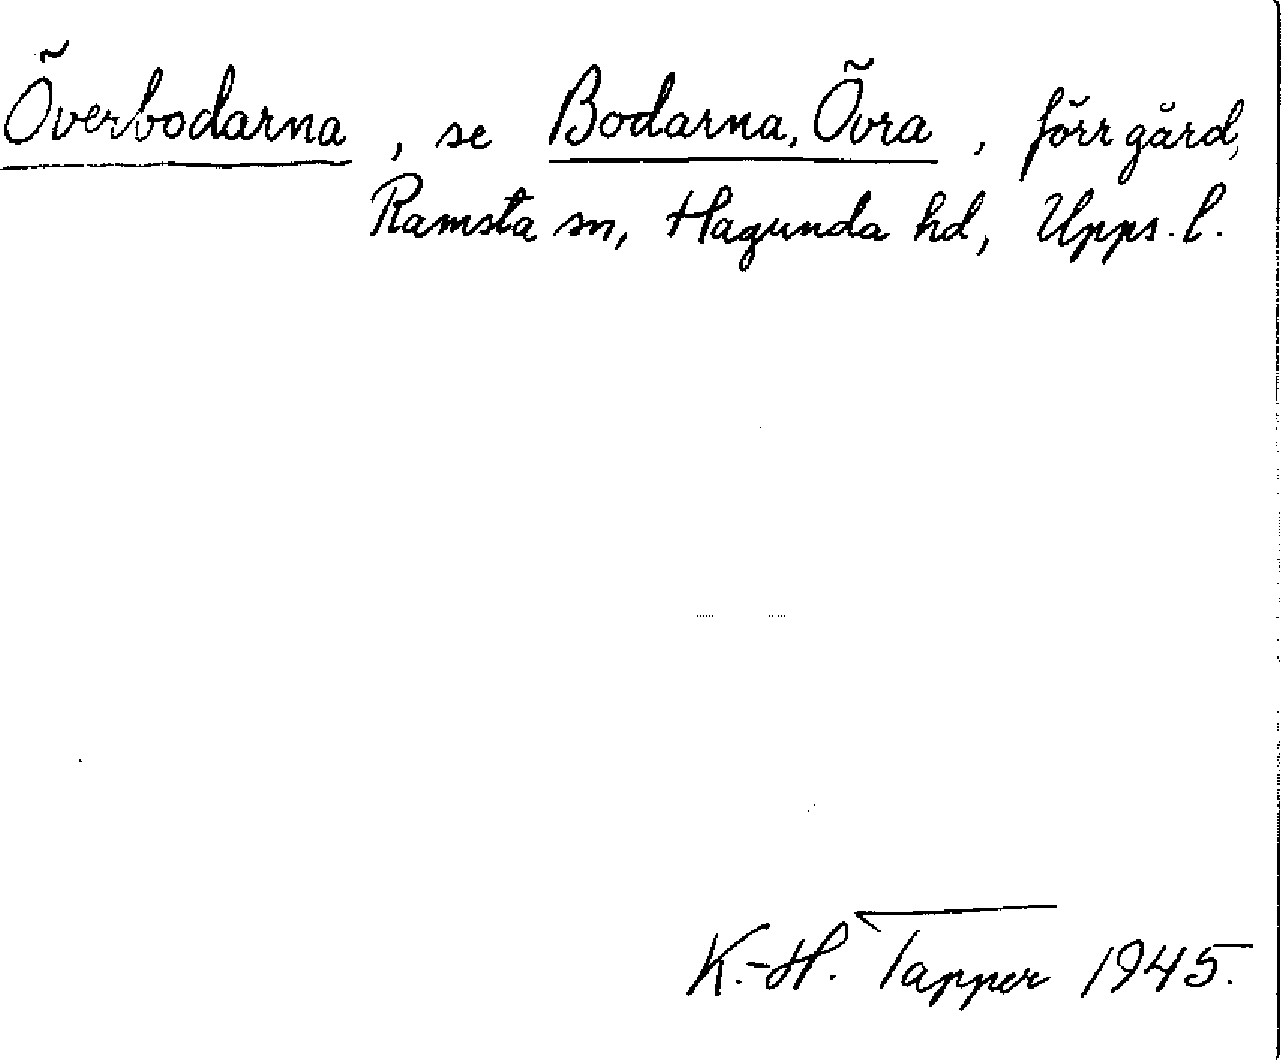 Överbodarna, se Bodarna, Övra, förr gård,
Ramsta sn, Hagunda hd, Upps. l.
K.-H. Tapper 1945.